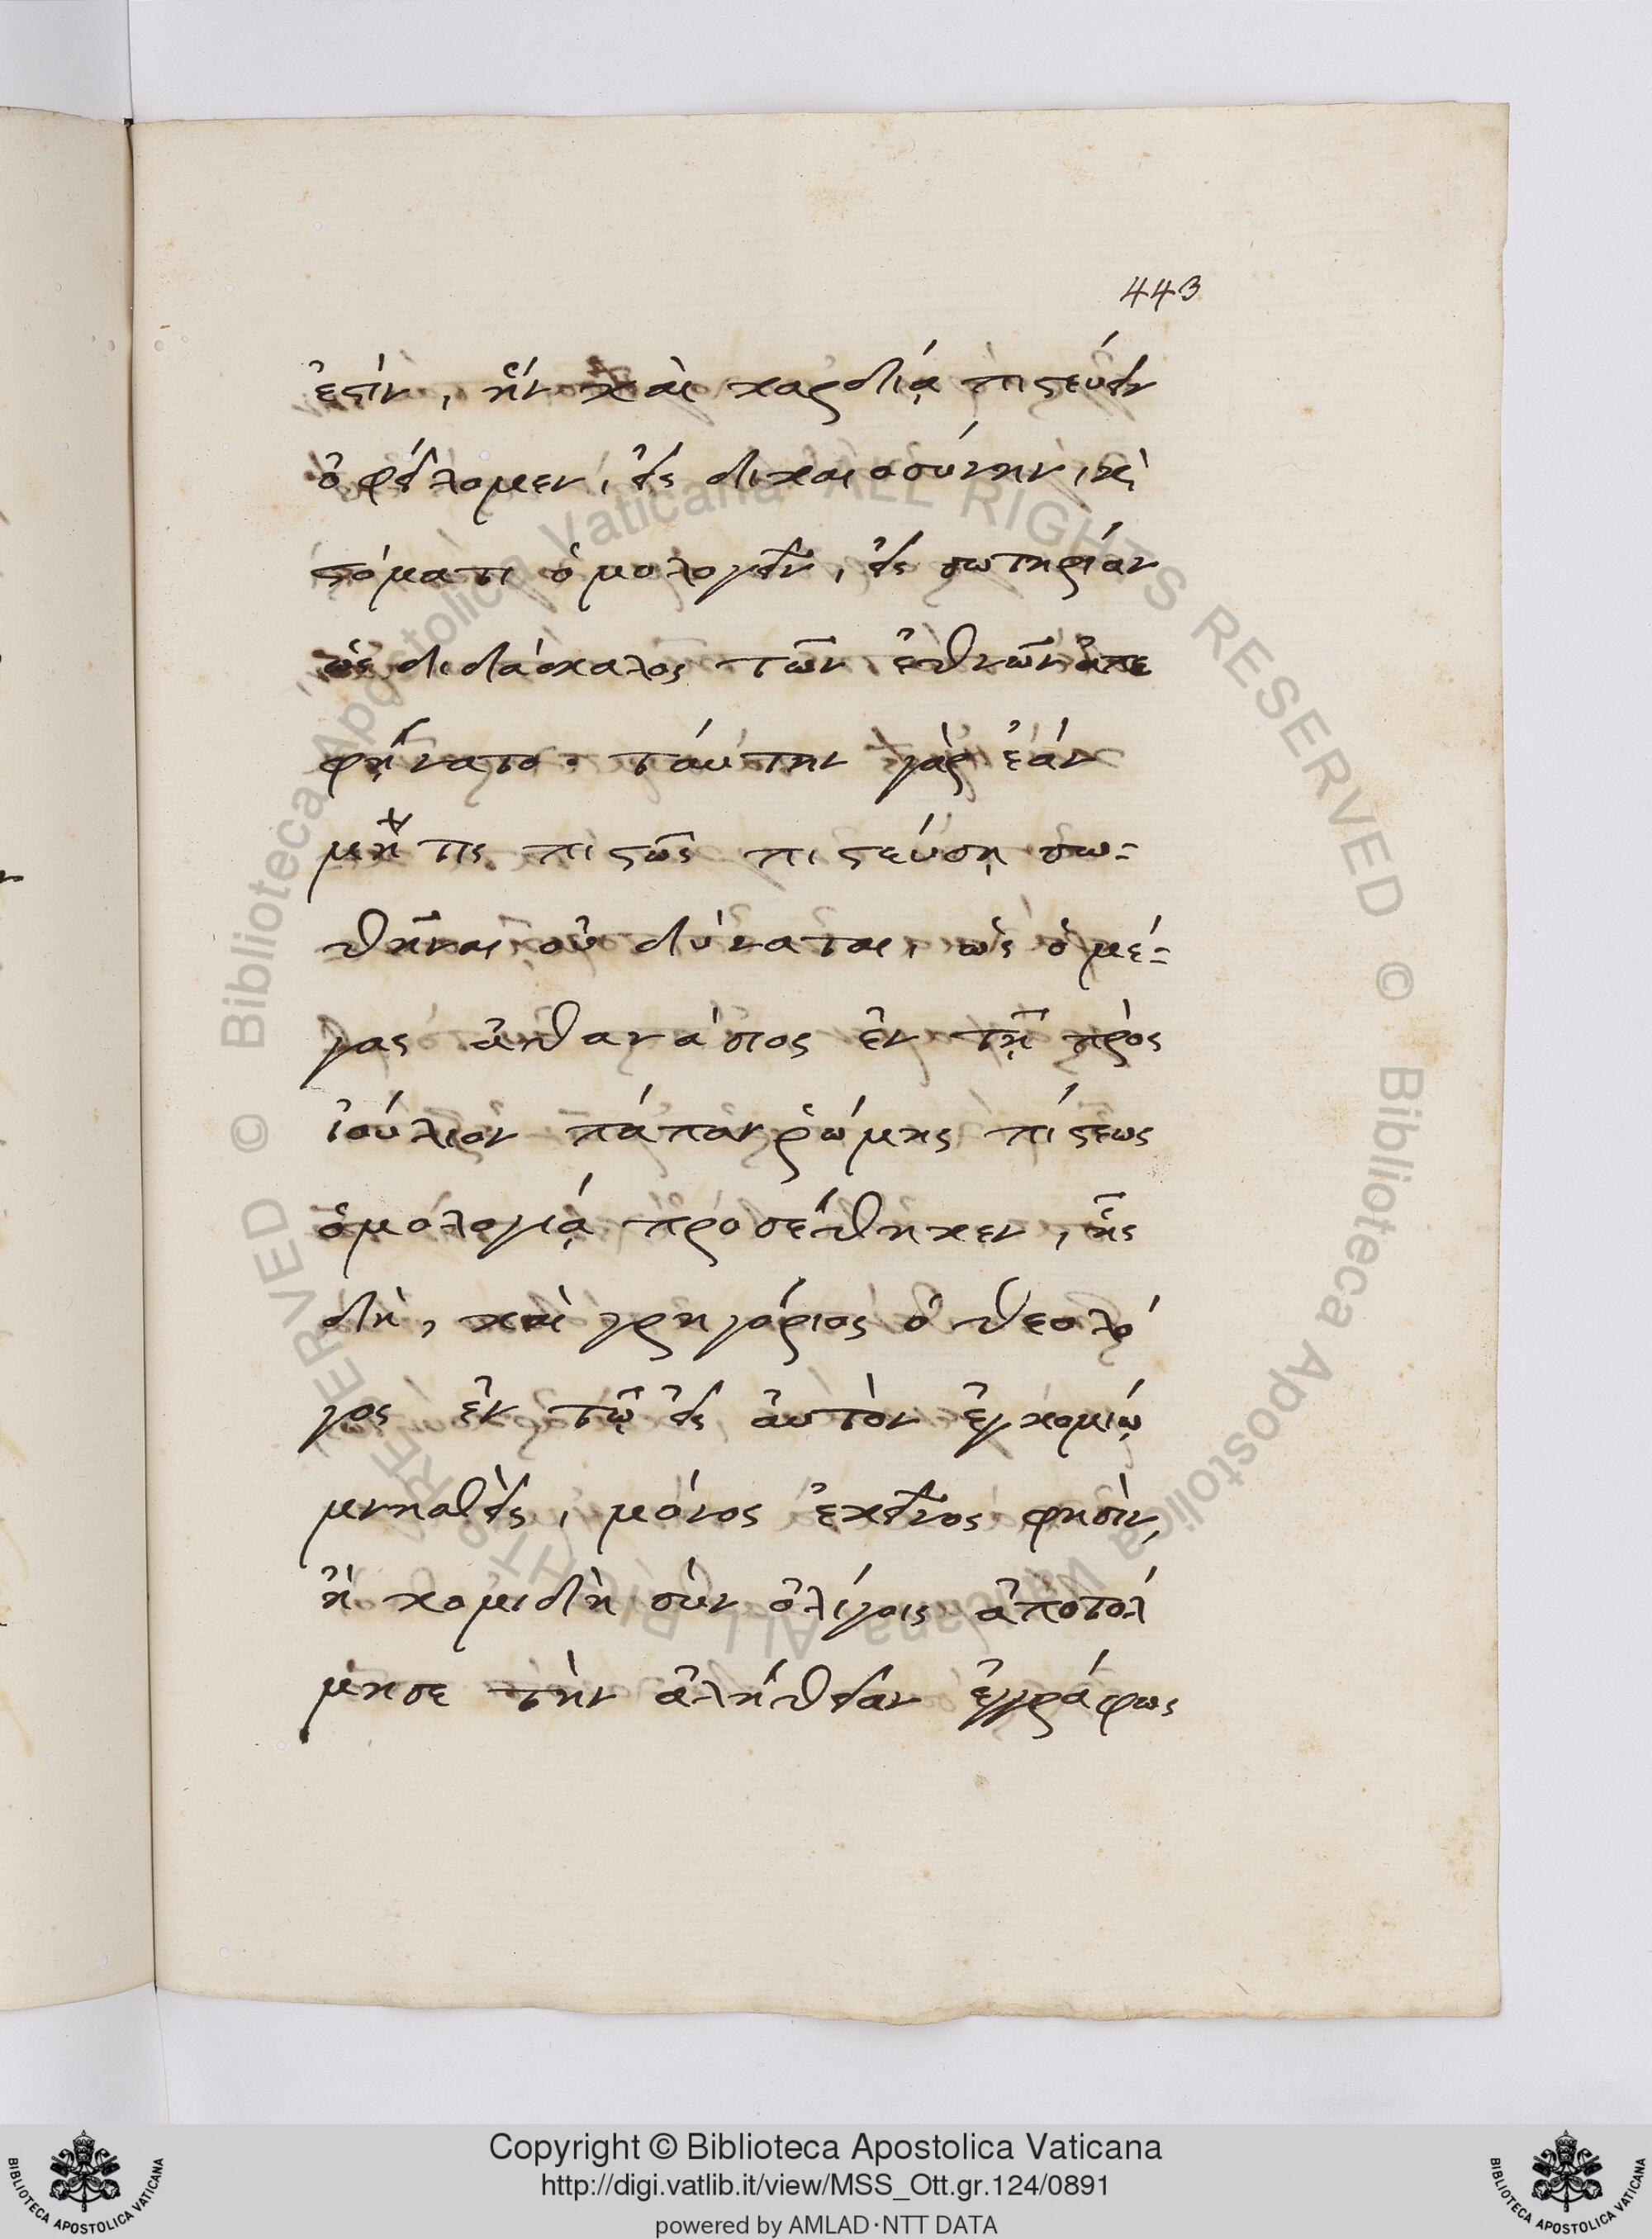 443
ἐστίν, ἣν καὶ καρδίᾳ πιστεύειν
ὀφείλομεν, εἰς δικαιοσύνην, κ(αὶ)
στόματι ὁμολογεῖν, εἰς σωτηρίαν
ὡς διδάσκαλος τῶν ἐθνῶν ἀπε
φῄνατο. ταύτην γὰρ ἐὰν
μή τις πιστῶς πιστεύσῃ σω-
θῆναι οὐ δύναται, ὡς ὁ μέ-
γας ἀθανάσιος ἐν τῇ πρὸς
ἰούλιον πάπαν ῥώμης πίστεως
ὁμολογίᾳ προσέθηκεν, ἧς
δὴ, καὶ γρηγόριος ὁ θεολό
γος ἐν τῷ εἰς ἀυτὸν ἐγκομίῳ
μνησθεὶς, μόνος ἐκεῖνος φησὶν,
ἢ κομιδὴ σὺν ὀλίγοις ἀποτολ
μησε τὴν ἀλήθειαν ἐγγράφως
Copyright © Biblioteca Apostolica Vaticana
http://digi.vatlib.it/view/MSS_Ott.gr.124/0891
powered by AMLAD·NTT DATA
BIBLIOTECA APOSTOLICA VATICANA
BIBLIOTECA APOSTOLICA VATICANA
© Biblioteca Apostolica Vaticana ALL RIGHTS RESERVED © Biblioteca Apostolica Vaticana ALL RIGHTS RESERVED